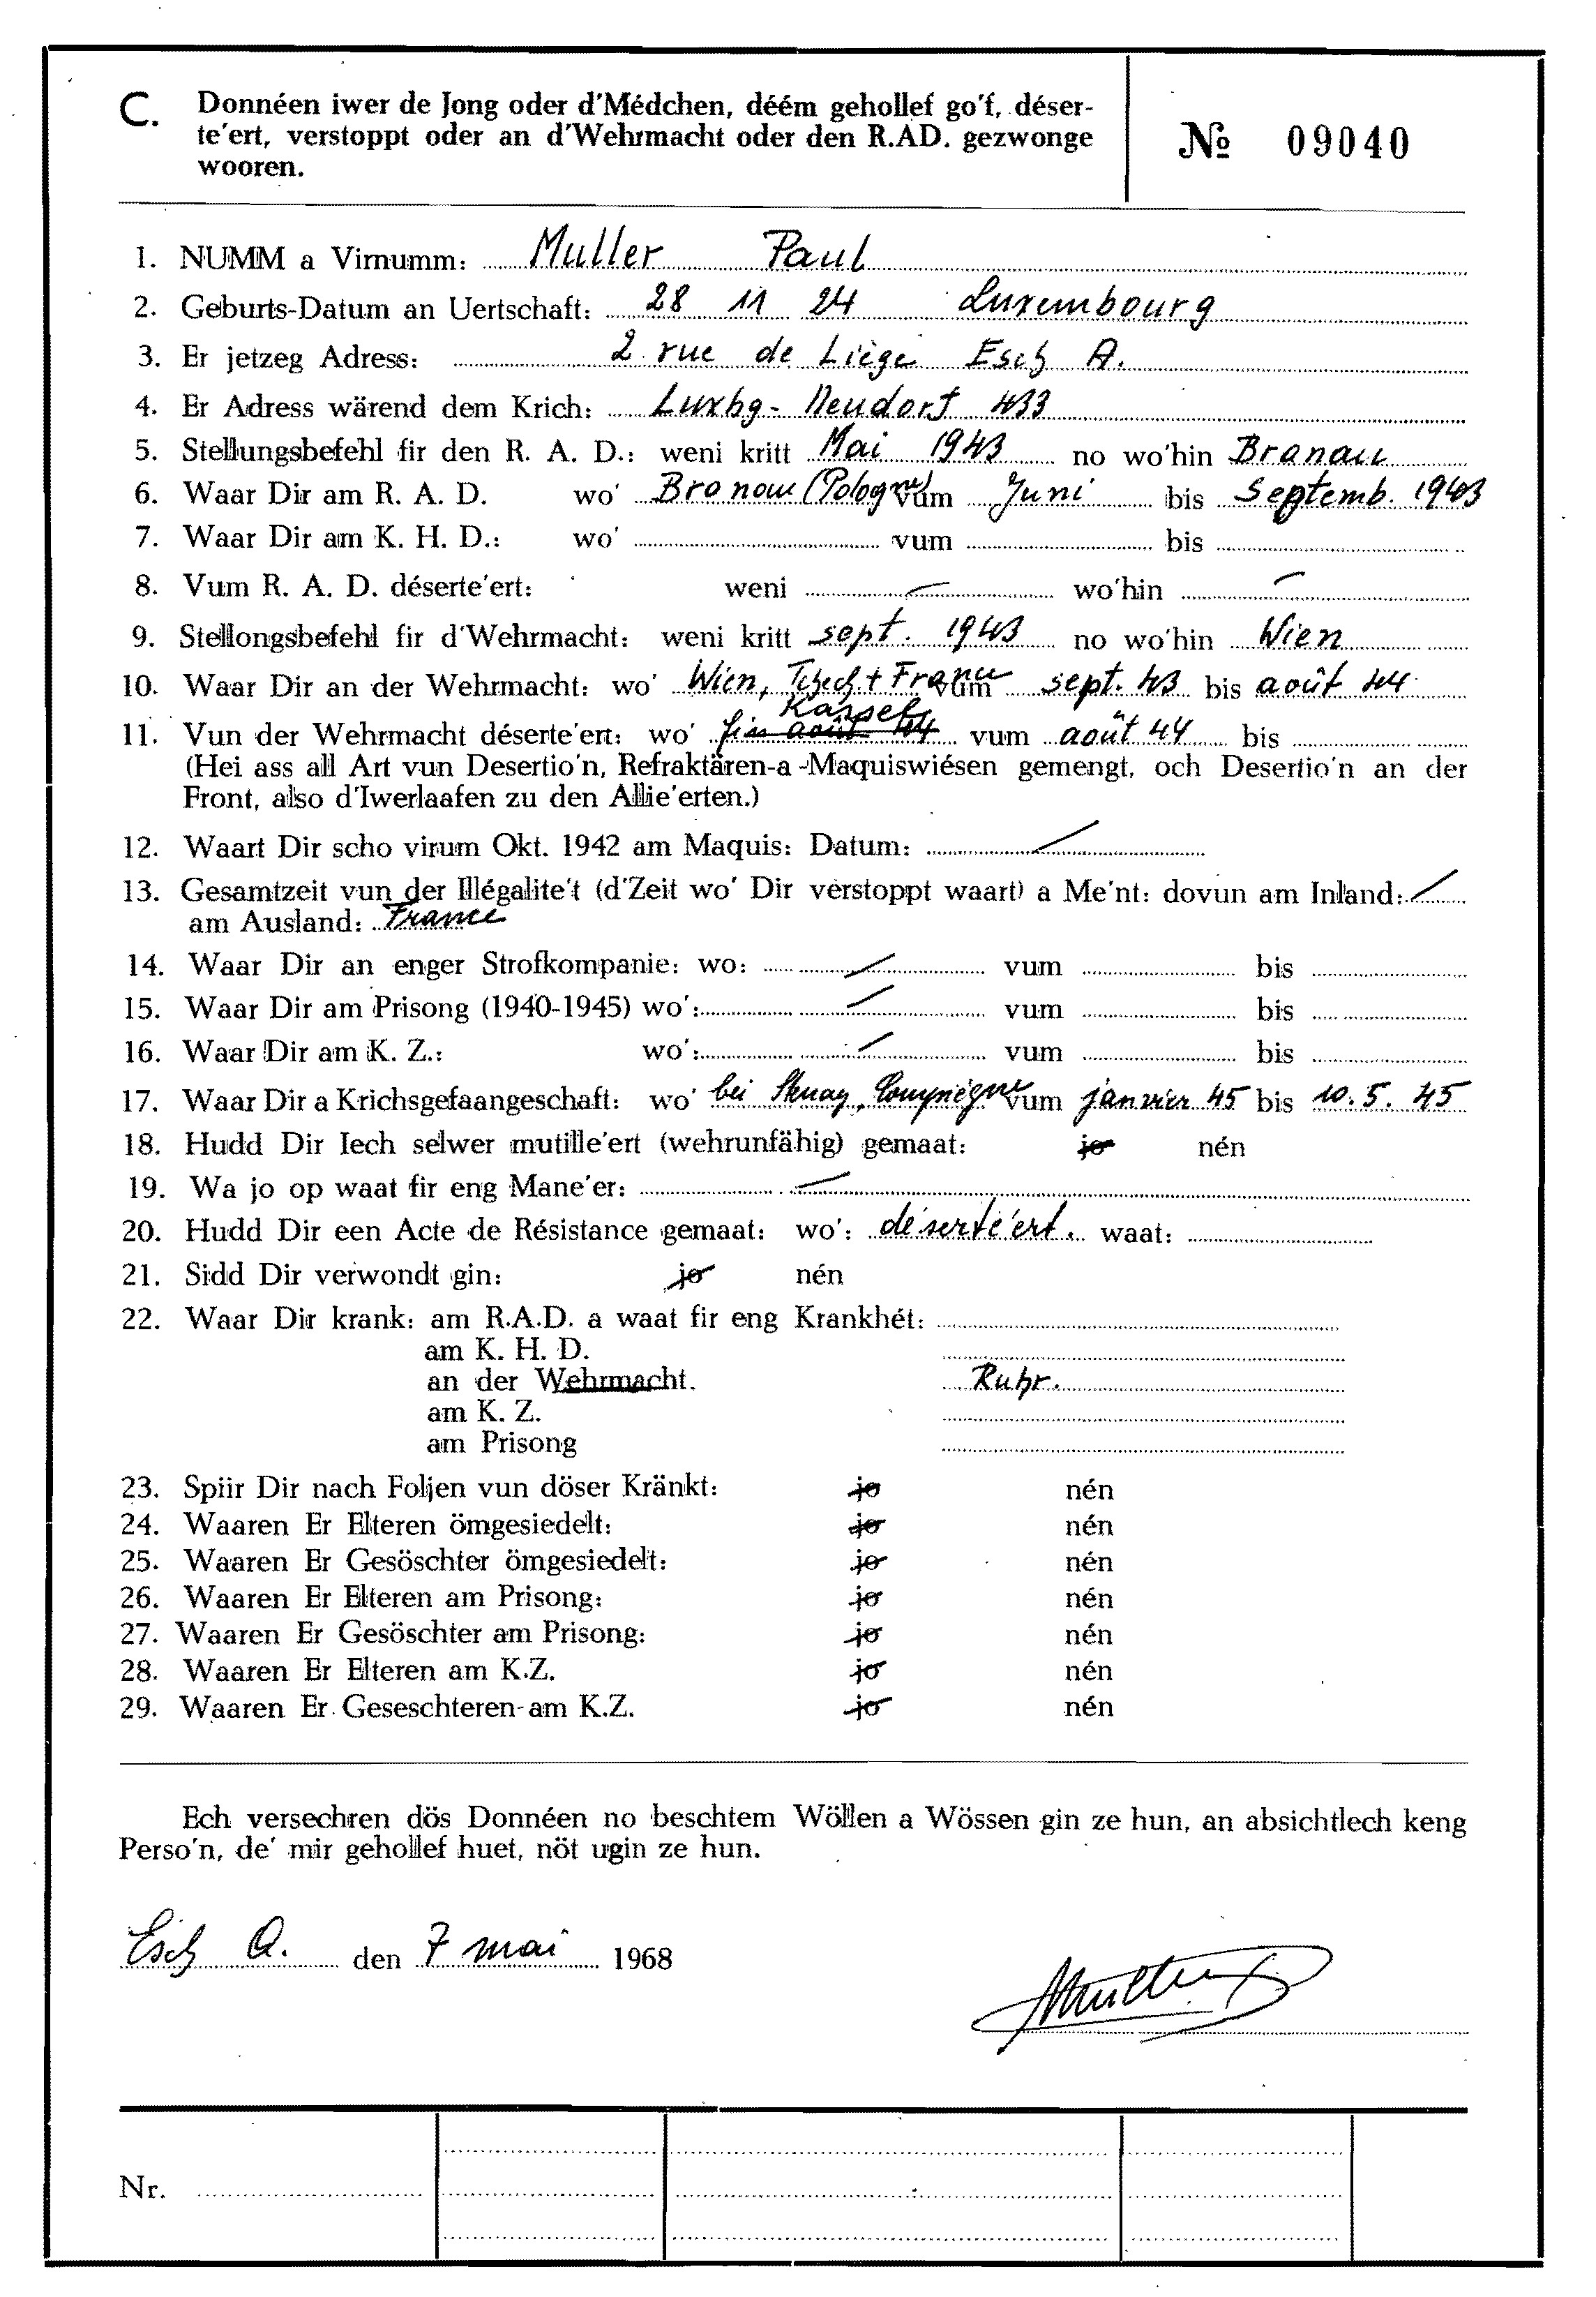 C. Donnéen iwer de Jong oder d'Médchen, déém gehollef go'f, déser-
te'ert, verstoppt oder an d'Wehrmacht oder den R.AD. gezwonge
wooren.
№ 09040
1. NUMM a Virnumm: Muller Paul
2. Geburts-Datum an Uertschaft: 28 11 24 Luxembourg
3. Er jetzeg Adress: 2 rue de Liège Esch A.
4. Er Adress wärend dem Krich: Luxbg - Neudorf 433
5. Stellungsbefehl fir den R. A. D.: weni kritt Mai 1943 no wo'hin Branau
6. Waar Dir am R. A. D. wo' Branau (Pologne) vum Juni bis Septemb. 1943
7. Waar Dir am K. H. D.: wo' vum bis
8. Vum R. A. D. déserte'ert: weni — wo'hin —
9. Stellongsbefehl fir d'Wehrmacht: weni kritt sept. 1943 no wo'hin Wien
10. Waar Dir an der Wehrmacht: wo' Wien, Tschech + France vum sept. 43 bis août 44
Kassel
11. Vun der Wehrmacht déserte'ert: wo' fin août 44 vum août 44 bis
(Hei ass all Art vun Desertio'n, Refraktären-a-Maquiswiésen gemengt, och Desertio'n an der
Front, also d'Iwerlaafen zu den Allie'erten.)
12. Waart Dir scho virum Okt. 1942 am Maquis: Datum: /
13. Gesamtzeit vun der Illégalite't (d'Zeit wo' Dir verstoppt waart) a Me'nt: dovun am Inland: /
am Ausland: France
14. Waar Dir an enger Strofkompanie: wo: / vum bis
15. Waar Dir am Prisong (1940-1945) wo': / vum bis
16. Waar Dir am K. Z.: wo': / vum bis
17. Waar Dir a Krichsgefaangeschaft: wo' bei Stenay, Compiègne vum janvier 45 bis 10. 5. 45
18. Hudd Dir Iech selwer mutille'ert (wehrunfähig) gemaat: jo nén
19. Wa jo op waat fir eng Mane'er: —
20. Hudd Dir een Acte de Résistance gemaat: wo': déserte'ert. waat:
21. Sidd Dir verwondt gin: jo nén
22. Waar Dir krank: am R.A.D. a waat fir eng Krankhét:
am K. H. D.
an der Wehrmacht. Ruhr.
am K. Z.
am Prisong
23. Spiir Dir nach Foljen vun döser Kränkt: jo nén
24. Waaren Er Elteren ömgesiedelt: jo nén
25. Waaren Er Gesöschter ömgesiedelt: jo nén
26. Waaren Er Elteren am Prisong: jo nén
27. Waaren Er Gesöschter am Prisong: jo nén
28. Waaren Er Elteren am K.Z. jo nén
29. Waaren Er Geseschteren-am K.Z. jo nén
Ech versechren dös Donnéen no beschtem Wöllen a Wössen gin ze hun, an absichtlech keng
Perso'n, de' mir gehollef huet, nöt ugin ze hun.
Esch A. den 7 mai 1968
Muller
Nr.